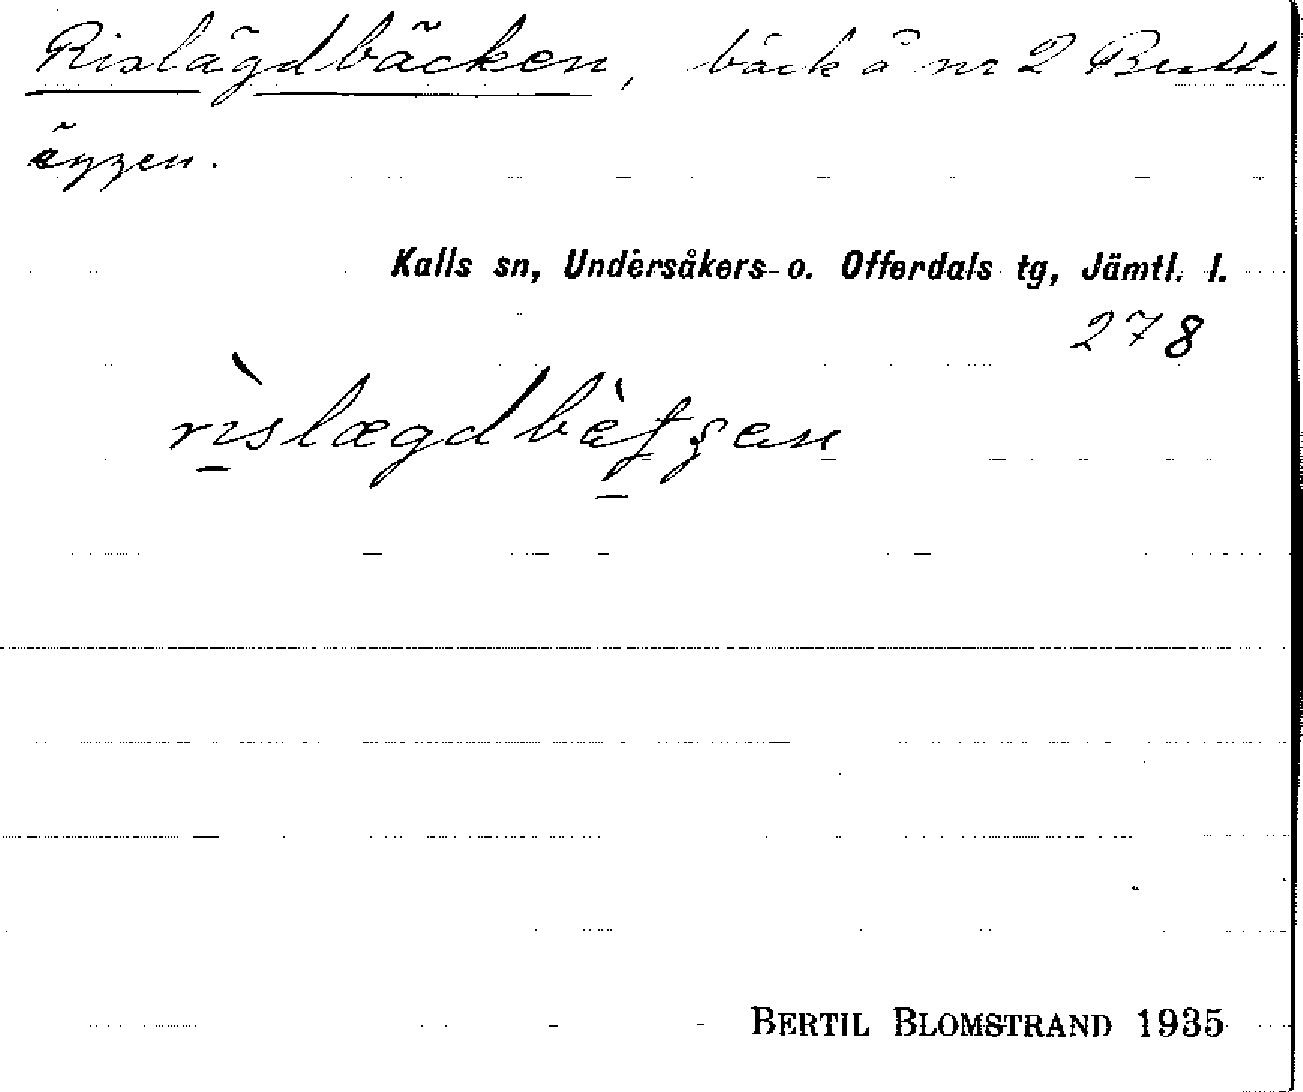 Rislägdbäcken, bäck å nr 2 Butt-
äggen.
Kalls sn, Undersåkers- o. Offerdals tg, Jämtl. l.
278
BERTIL BLOMSTRAND 1935